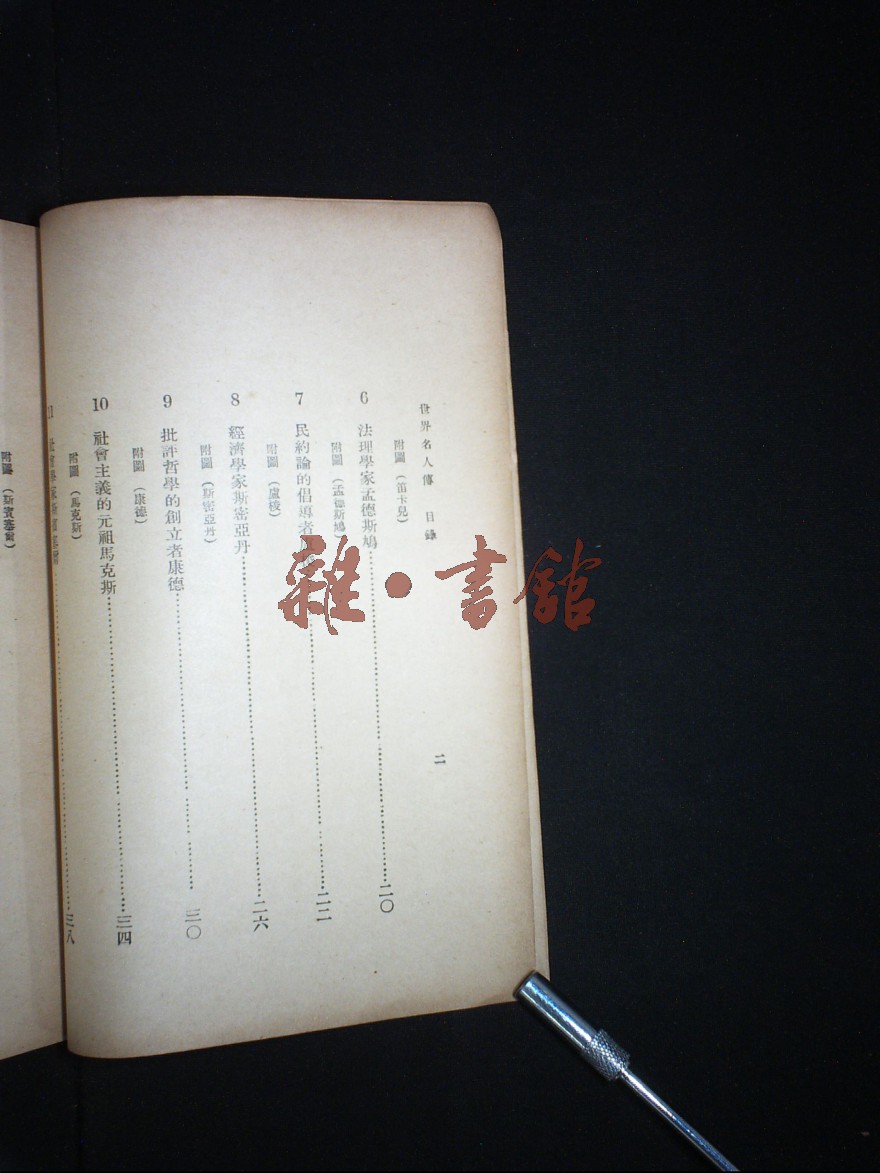 世界名人傳 目錄
二
附圖（笛卡兒）
6 法理學家孟德斯鳩……二〇
附圖（孟德斯鳩）
7 民約論的倡導者……二二
附圖（盧梭）
8 經濟學家斯密亞丹……二六
附圖（斯密亞丹）
9 批評哲學的創立者康德……三〇
附圖（康德）
10 社會主義的元祖馬克斯……三四
附圖（馬克斯）
11 社會學家斯賓塞爾……三八
附圖（斯賓塞爾）
雜·書館